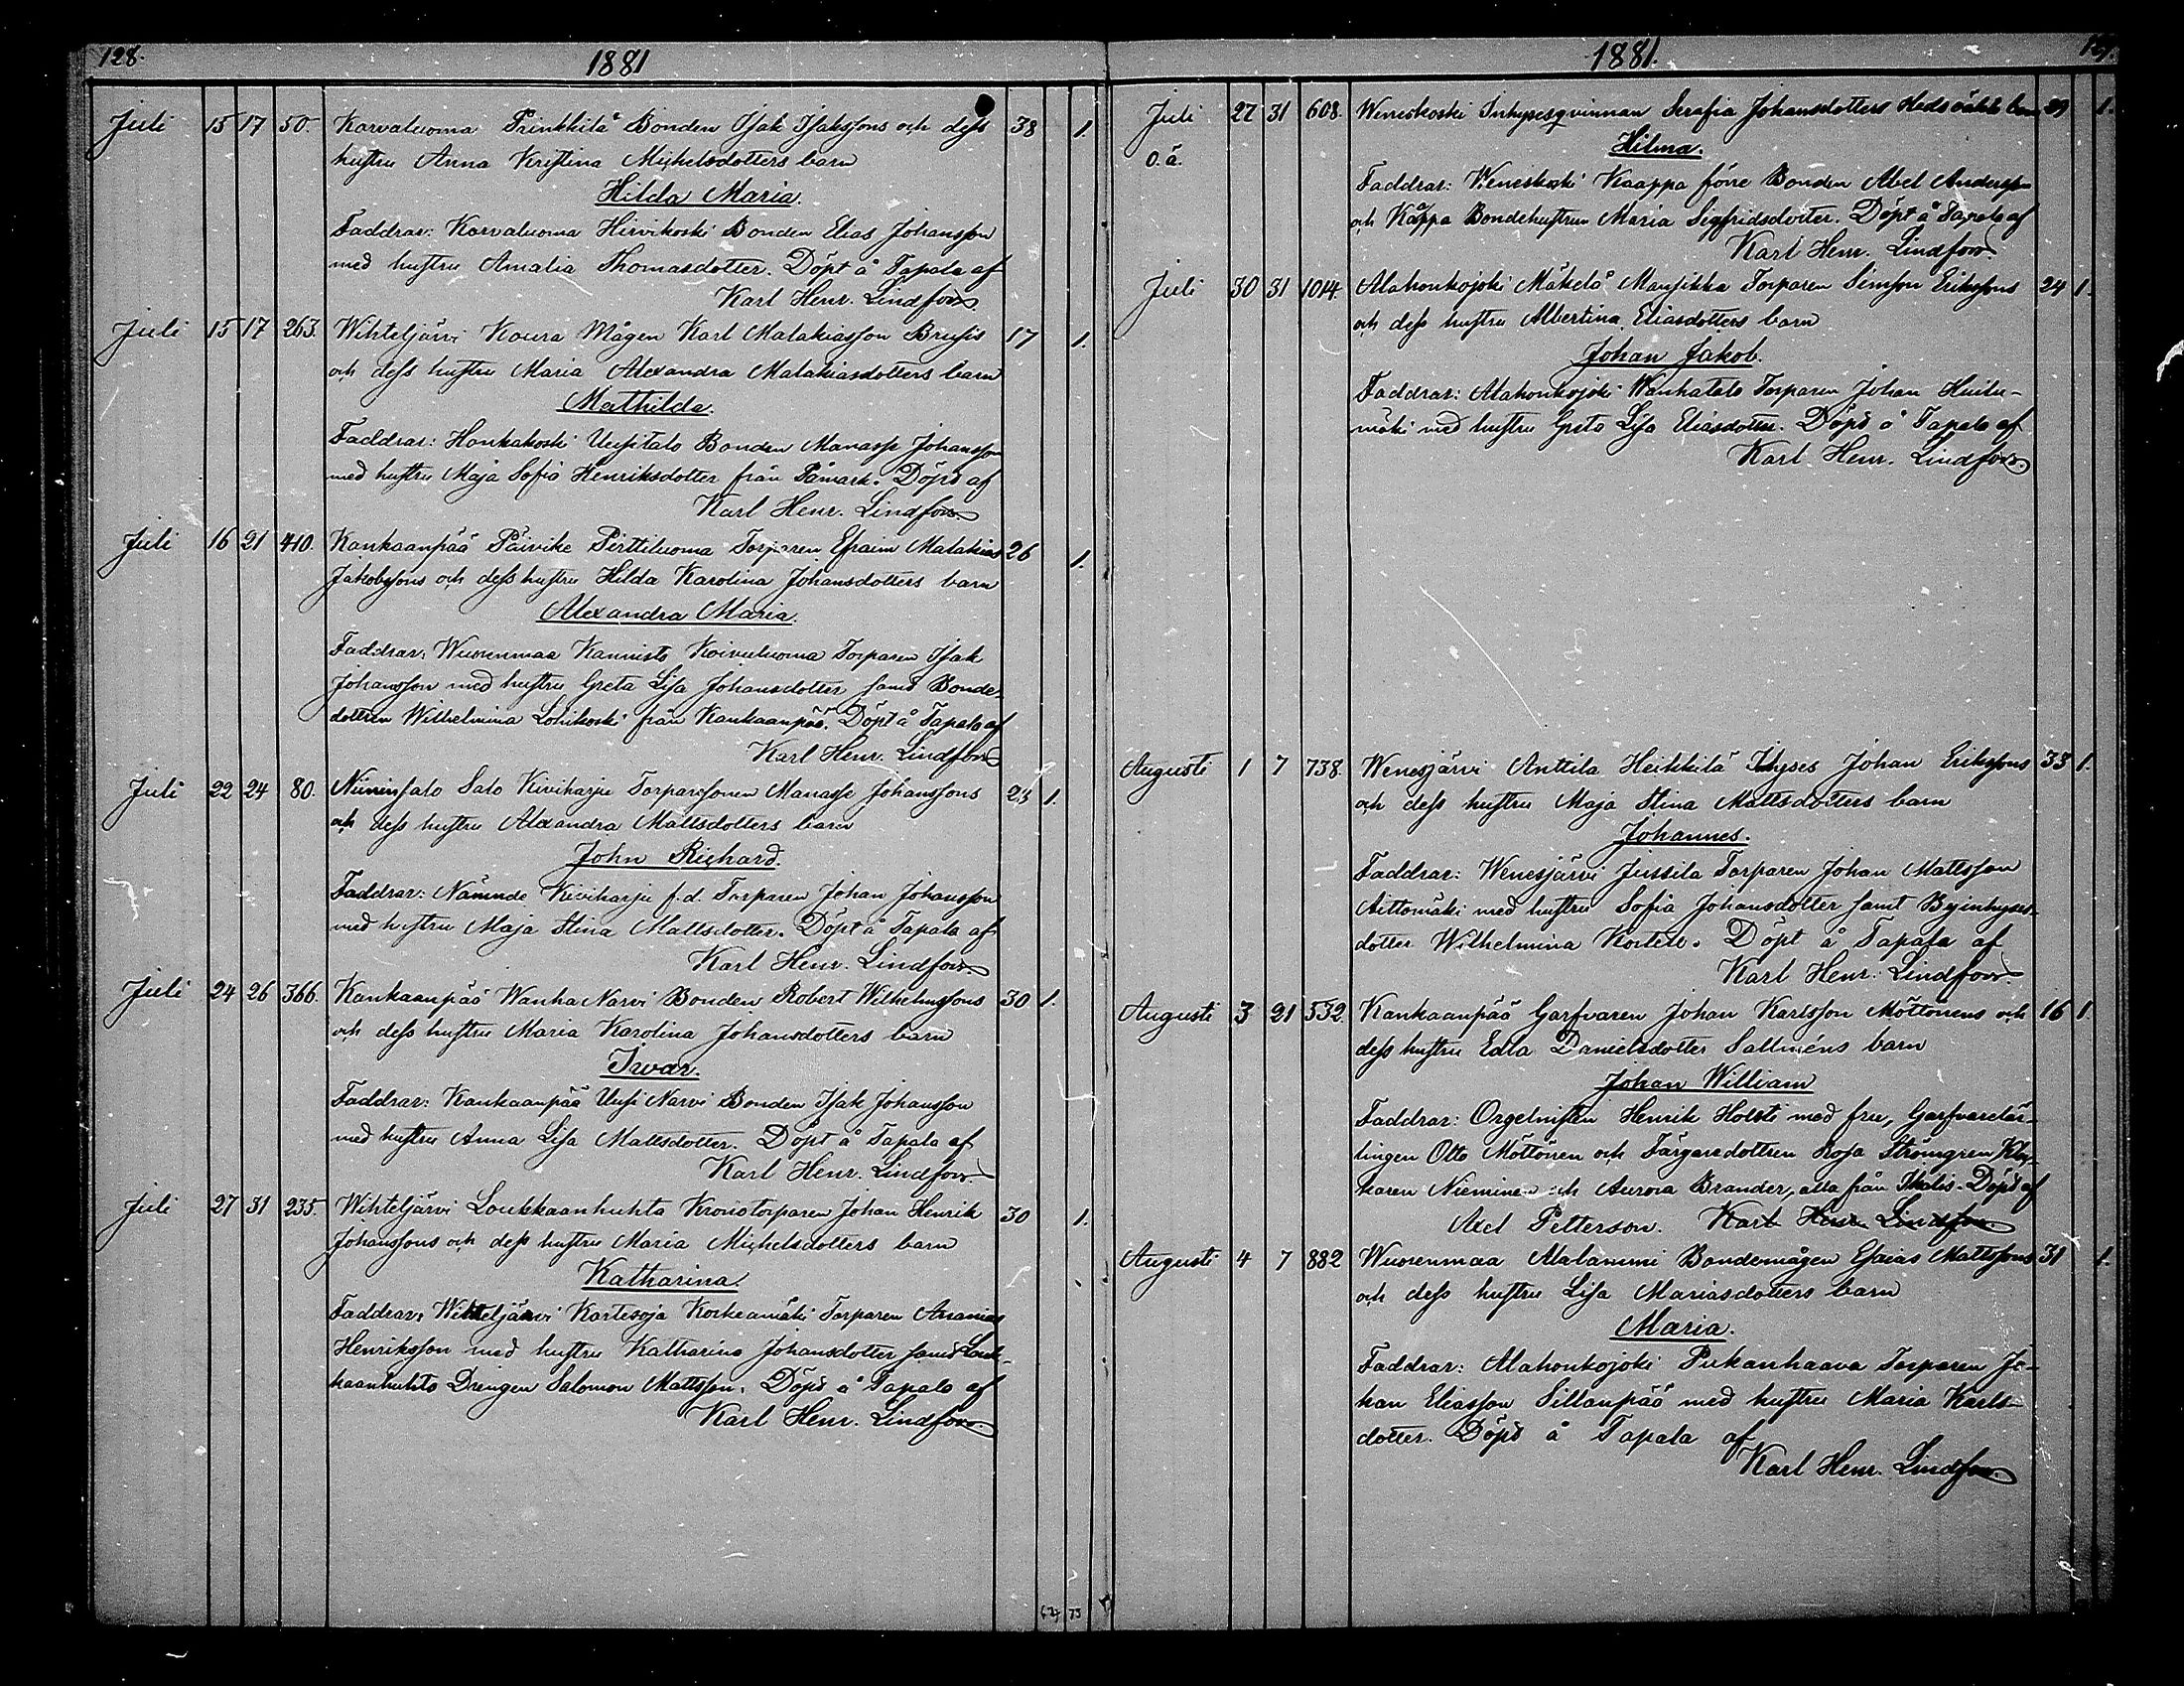 128.
1881
Juli 15 17 50. Karvaluoma Prinkkilä Bonden Isak Isakssons och dess 38 1.
hustru Anna Kristina Michelsdotters barn
Hilda Maria.
Faddrar: Karvaluoma Hirvikoski Bonden Elias Johansson
med hustru Amalia Thomasdotter. Döpt å Tapala af
Karl Henr. Lindfors.
Juli 15 17 263. Wihteljärvi Koura Mågen Karl Malakiasson Brusis 17 1.
och dess hustru Maria Alexandra Malakiasdotters barn
Mathilda.
Faddrar: Honkakoski Uusitalo Bonden Manasse Johansson
med hustru Maja Sofia Henriksdotter från Påmark. Döpt af
Karl Henr. Lindfors.
Juli 16 21 410. Kankaanpää Päivike Pirttiluoma Torparen Efraim Malakias 26 1.
Jakobssons och dess hustru Hilda Karolina Johansdotters barn
Alexandra Maria.
Faddrar: Wuorenmaa Kannisto Koivuluoma Torparen Isak
Johansson med hustru Greta Lisa Johansdotter samt Bonde-
dottren Wilhelmina Lohikoski från Kankaanpää. Döpt å Tapala af
Karl Henr. Lindfors
Juli 22 24 80. Niinisalo Salo Kiviharju Torparesonen Manasse Johanssons 23 1.
och dess hustru Alexandra Mattsdotters barn
John Richard.
Faddrar: Nämnde Kiviharju f.d. Torparen Johan Johansson
med hustru Maja Stina Mattsdotter. Döpt å Tapala af
Karl Henr. Lindfors.
Juli 24 26 366. Kankaanpää Wanha Narvi Bonden Robert Wilhelmssons 30 1.
och dess hustru Maria Karolina Johansdotters barn
Ivar.
Faddrar: Kankaanpää Uusi Narvi Bonden Isak Johansson
med hustru Anna Lisa Mattsdotter. Döpt å Tapala af
Karl Henr. Lindfors
Juli 27 31 235. Wihteljärvi Loukkaanhuhta Kronotorparen Johan Henrik 30 1.
Johanssons och dess hustru Maria Michelsdotters barn
Katharina.
Faddrar: Wihteljärvi Kortesoja Korkeamäki Torparen Ananias
Henriksson med hustru Katharina Johansdotter samt Louk-
kaanhuhta Drengen Salomon Mattsson. Döpt å Tapala af
Karl Henr. Lindfors.
1881.
Juli 27 31 608. Weneskoski Inhysesqvinnan Serafia Johansdotters barn 29 1.
o.ä. Hilma.
Faddrar: Weneskoski Kaappa förre Bonden Abel Andersson
och Käppä Bondehustrun Maria Segfridsdotter. Döpt å Tapala af
Karl Henr. Lindfors.
Juli 30 31 1014. Alahonkojoki Mäkelä Mansikka Torparen Simson Erikssons 24 1.
och dess hustru Albertina Eliasdotters barn
Johan Jakob.
Faddrar: Alahonkojoki Wanhatalo Torparen Johan Huilu-
mäki med hustru Greta Lisa Eliasdotter. Döpt å Tapala af
Karl Henr. Lindfors.
Augusti 1 7 738. Wenesjärvi Anttila Heikkilä Inhyses Johan Erikssons 33 1.
och dess hustru Maja Stina Mattsdotters barn
Johannes.
Faddrar: Wenesjärvi Jussila Torparen Johan Mattsson
Aittomäki med hustru Sofia Johansdotter samt Byinhyses-
dotter Wilhelmina Kortet. Döpt å Tapala af
Karl Henr. Lindfors.
Augusti 3 21 532. Kankaanpää Garfvaren Johan Karlsson Möttönens och 16 1.
dess hustru Edla Danielsdotter Salléns barn
Johan William
Faddrar: Orgelnisten Henrik Holsti med fru, Garfvarelär-
lingen Otto Möttönen och Färgaredottren Rosa Strömgren
Nieminen och Aurora Brander, alla från Ikalis. Döpt af
Axel Petterson. Karl Henr. Lindfors.
Augusti 4 7 882 Wuorenmaa Alalammi Bondemågen Esaias Mattssons 31 1.
och dess hustru Lisa Mariasdotters barn
Maria.
Faddrar: Alahonkojoki Pukanhaava Torparen Jo-
han Eliasson Sillanpää med hustru Maria Karls-
dotter. Döpt å Tapala af
Karl Henr. Lindfors.